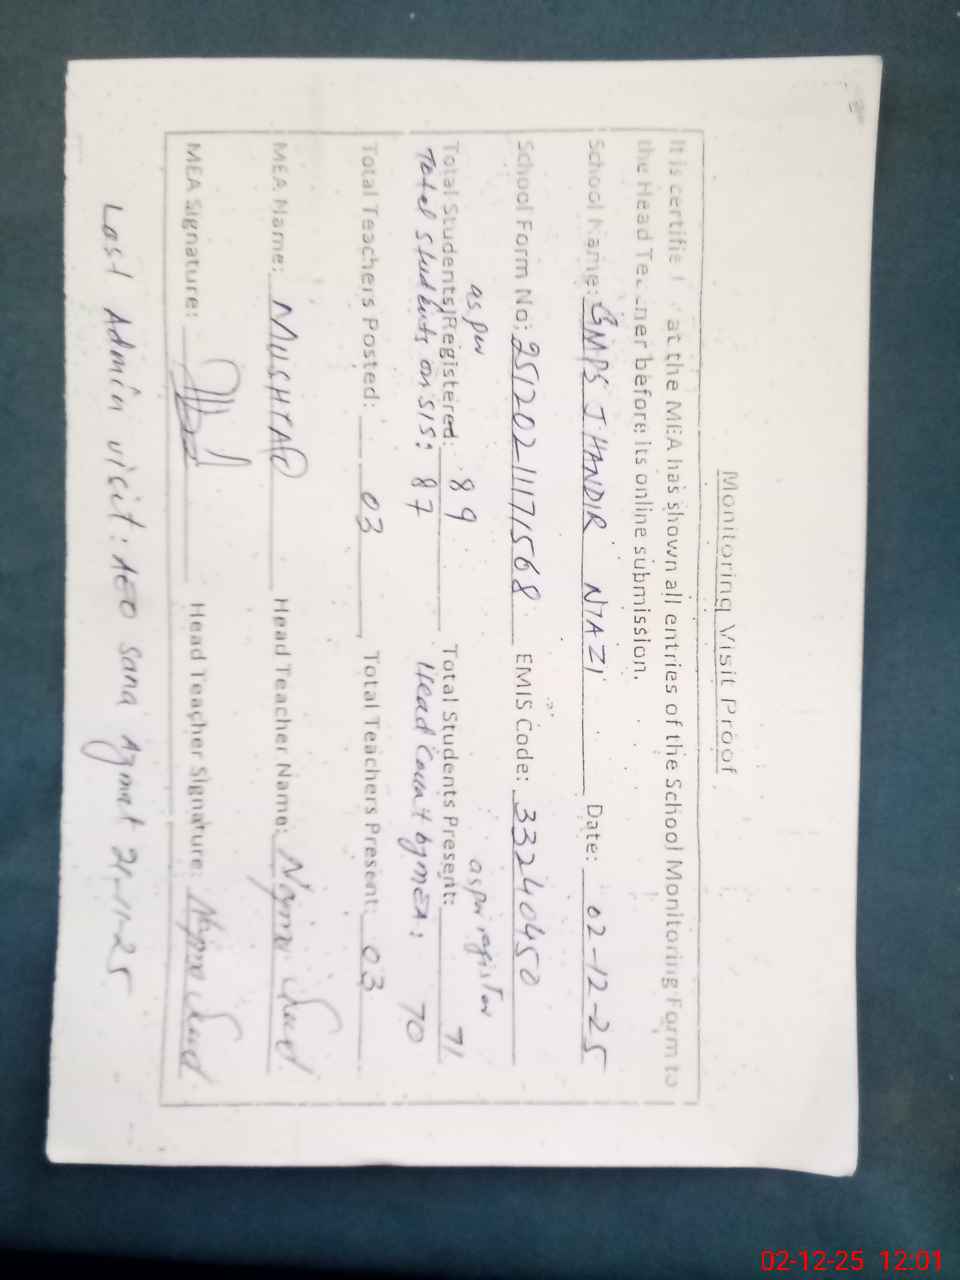 Monitoring Visit Proof
It is certified that the MEA has shown all entries of the School Monitoring Form to
the Head Teacher before its online submission.
School Name: GMPS JHANDIR NIAZI Date: 02-12-25
School Form No: 251202111171568 EMIS Code: 33240450
as per as per register
Total Students Registered: 89 Total Students Present: 71
Total students on SIS: 87 Head Count by MEA: 70
Total Teachers Posted: 03, Total Teachers Present: 03
MEA Name: MUSHTAQ Head Teacher Name:
MEA Signature: Head Teacher Signature:
Last Admin visit: AEO Sana Azmat 21-11-25
02-12-25 12:01